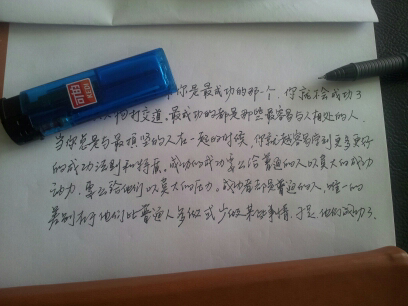 你是最成功的那一个，你就不会成功了
打交道，最成功的都是那些最容易与人相处的人，
当你总是与最顶尖的人在一起的时候，你就越容易学到更多更好
的成功法则和特质。成功的成功要么给普通的人以莫大的
动力，要么给他们以莫大的压力。成功者都是普通的人，唯一的
差别在于他们比普通人多做或少做某些事情，于是他们成功了.